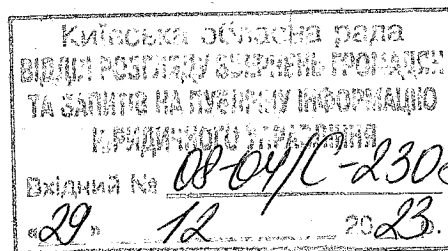 Київська обласна рада
ВІДДІЛ РОЗГЛЯДУ ЗВЕРНЕНЬ ГРОМАДЯН
ТА ЗАПИТІВ НА ПУБЛІЧНУ ІНФОРМАЦІЮ
ЮРИДИЧНОГО УПРАВЛІННЯ
Вхідний № 08-04/С-230
«29» 12 2023